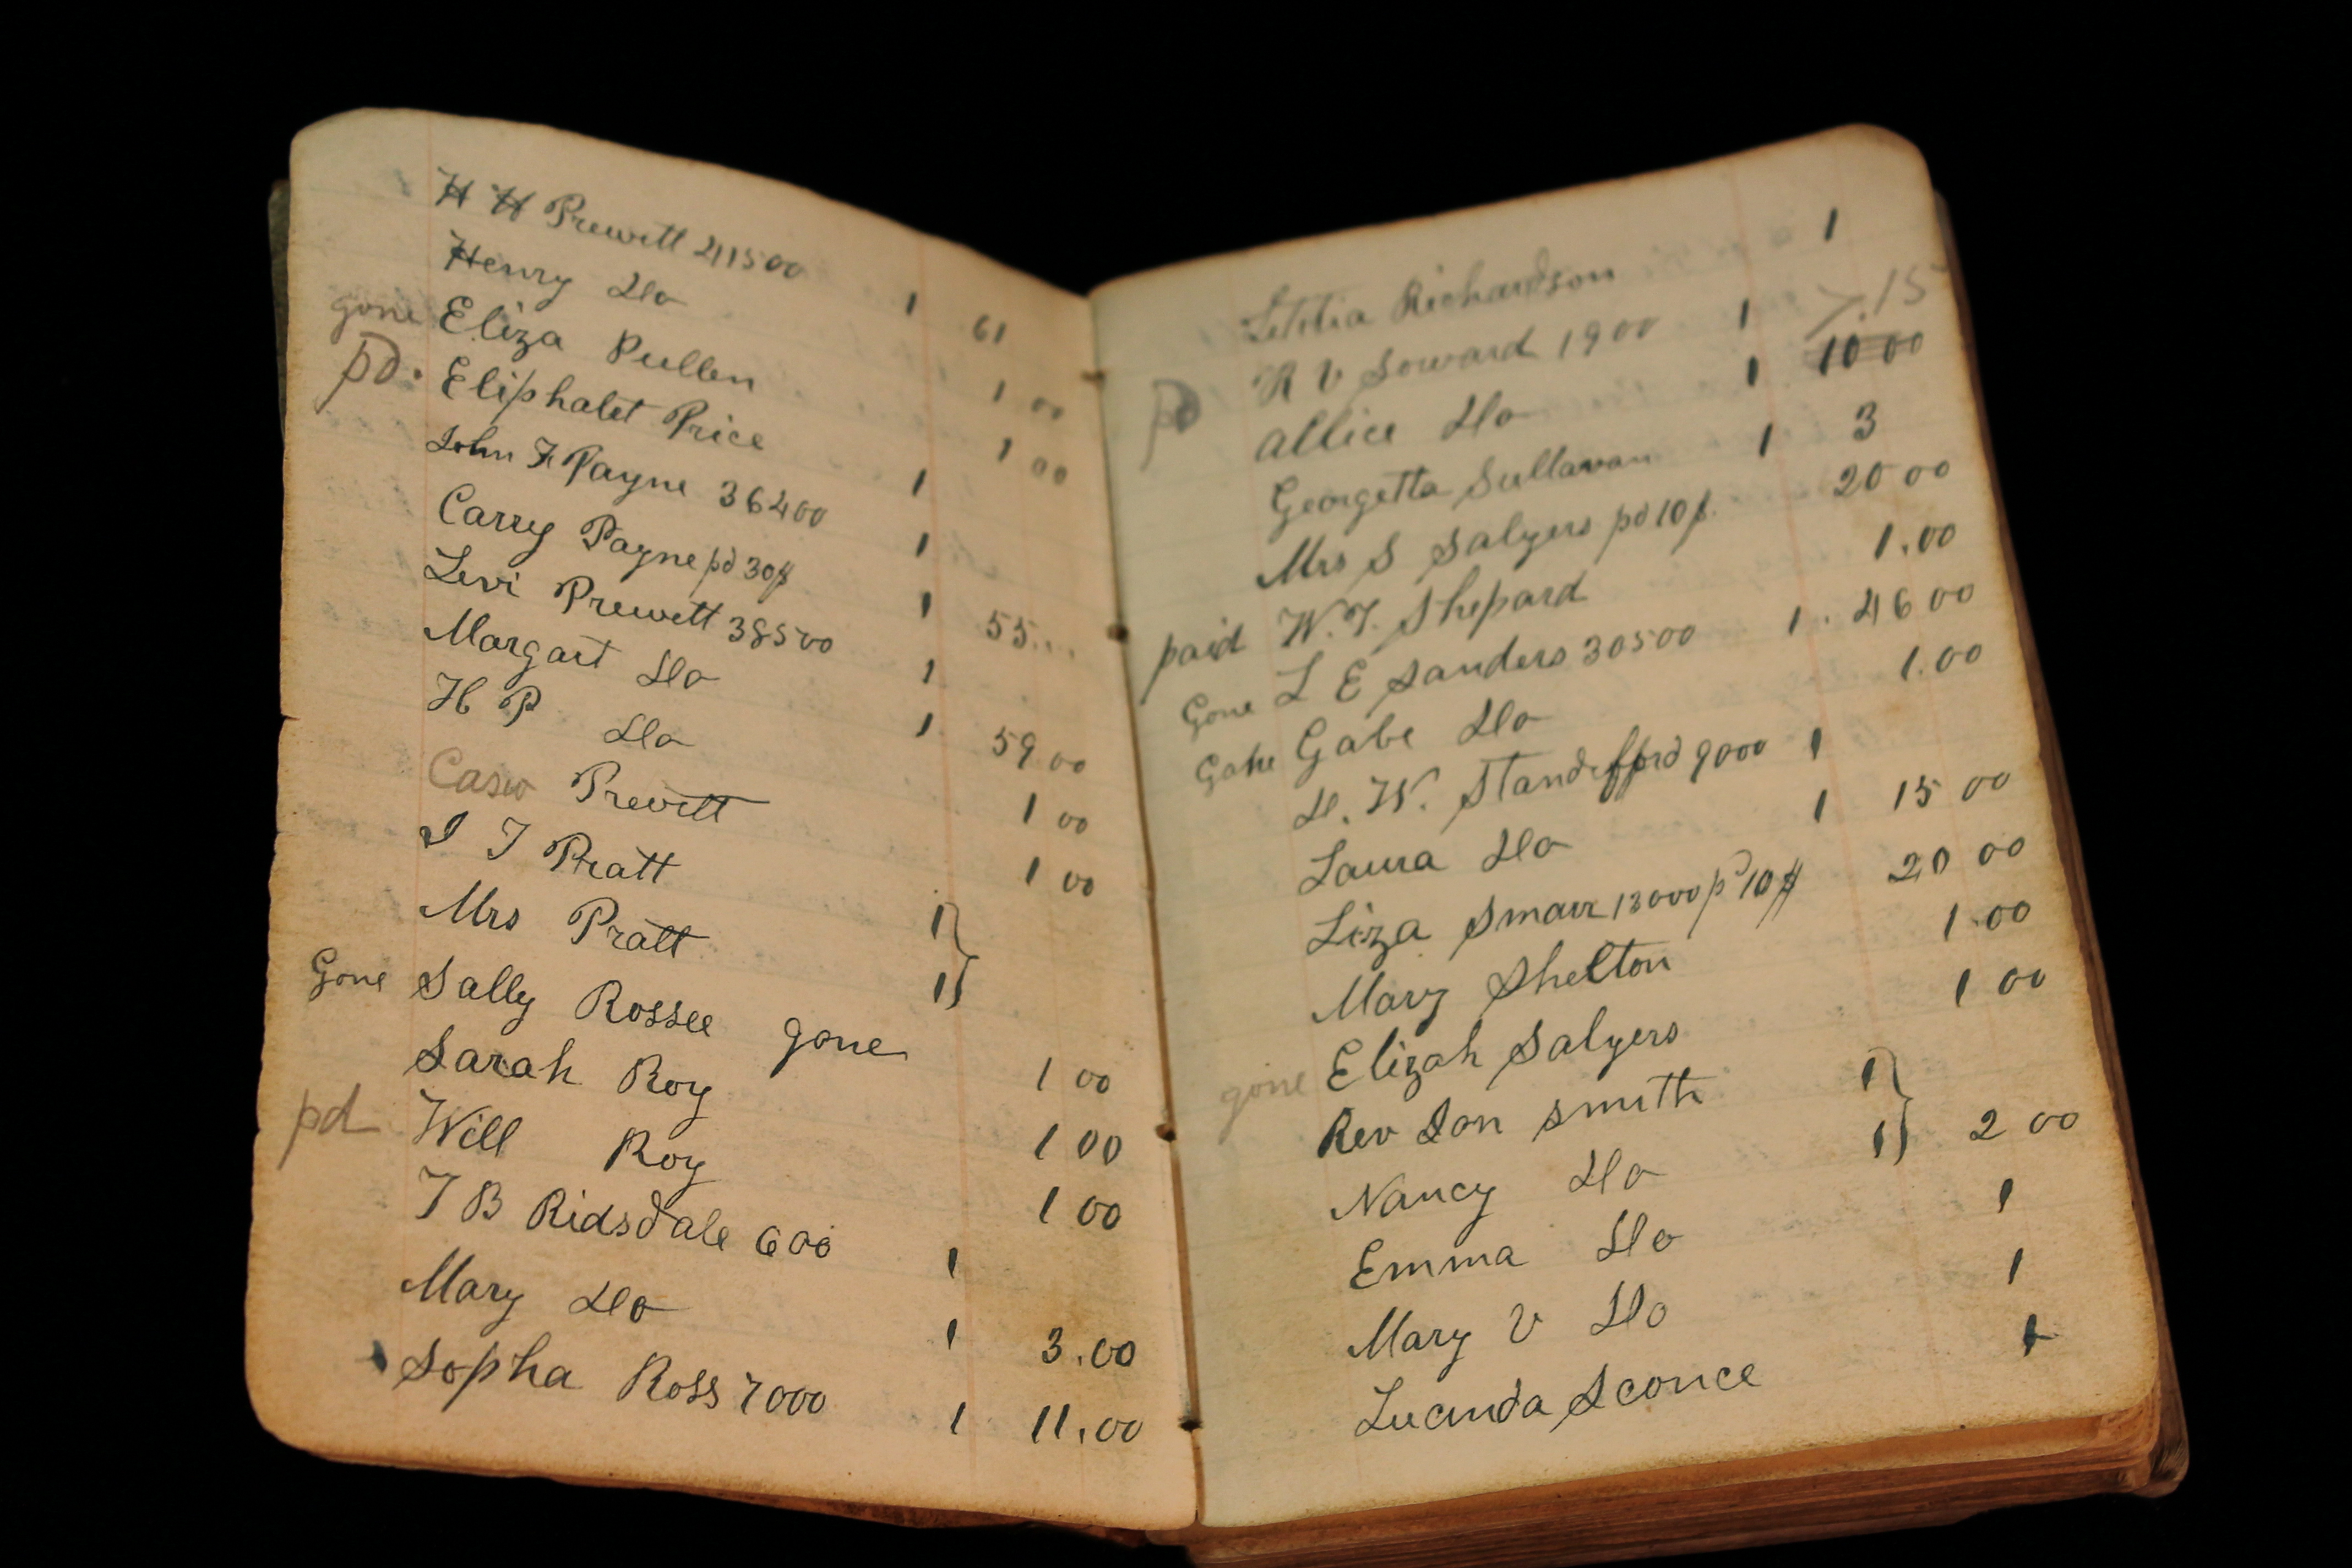 H H Prewitt 41500
Henry Do 1 61
gone Eliza Pullen 1 00
pd. Eliphalet Price 1 00
John F Payne 36400 1
Carry Payne pd 30$ 1 55...
Levi Prewett 38500 1
Margart Do 1
H P Do 1 59 00
Prewitt 1 00
J T Pratt 1 00
Mrs Pratt 1
Gone Sally Rossee gone 1 00
Sarah Roy 1 00
pd Will Roy 1 00
T B Ridsdale 600 1
Mary Do 1 3.00
Sopha Ross 7000 1 11.00
Letitia Richardson 1
R V Soward 1900 1 7.15
pd Allice Do 1 10 00
Georgetta Sullavan 1 3
Mrs S Salyers pd 10$. 20 00
paid W.T. Shepard 1.00
Gone L E Sanders 30500 1. 46 00
Gone Gabe Do 1.00
D. W. Standifford 9000 1
Laura Do 1 15 00
Liza Smarr 13000 pd 10$ 20 00
Mary Shelton 1.00
gone Elizah Salyers 1 00
Rev Don Smith 1
Nancy Do 1 2 00
Emma Do 1
Mary V Do 1
Lucinda Sconce 1